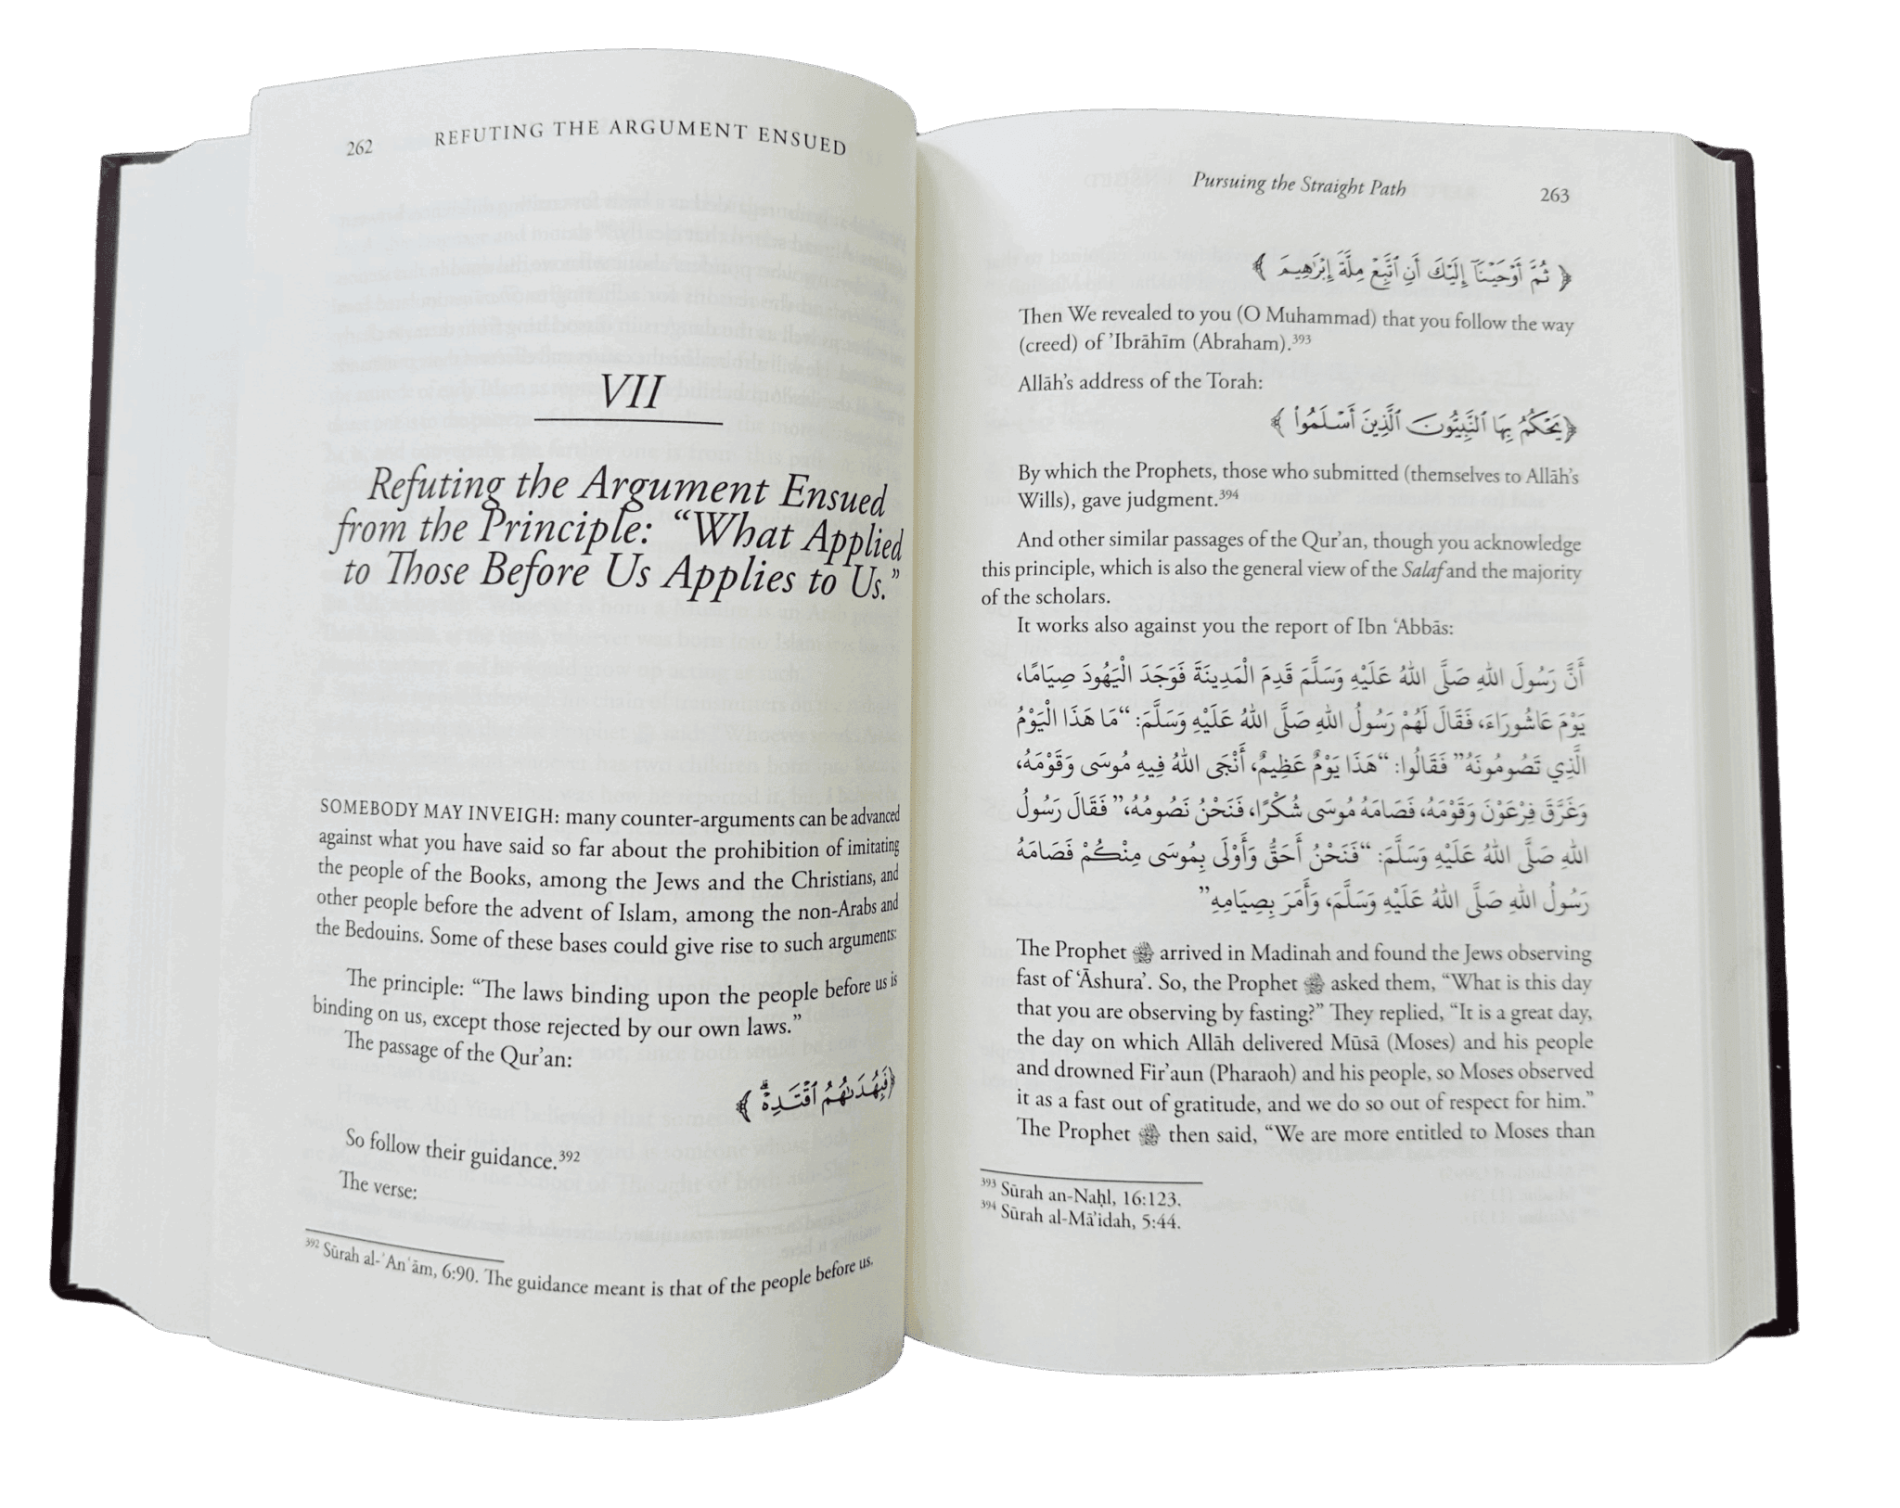 262 REFUTING THE ARGUMENT ENSUED
VII
Refuting the Argument Ensued
from the Principle: “What Applied
to Those Before Us Applies to Us.”
SOMEBODY MAY INVEIGH: many counter-arguments can be advanced
against what you have said so far about the prohibition of imitating
the people of the Books, among the Jews and the Christians, and
other people before the advent of Islam, among the non-Arabs and
the Bedouins. Some of these bases could give rise to such arguments:
The principle: “The laws binding upon the people before us is
binding on us, except those rejected by our own laws.”
The passage of the Qur’an:
﴿فَبِهُدَىٰهُمُ ٱقْتَدِهْ ۗ ﴾
So follow their guidance.³⁹²
The verse:
³⁹² Sūrah al-’An‘ām, 6:90. The guidance meant is that of the people before us.
Pursuing the Straight Path 263
﴿ ثُمَّ أَوْحَيْنَآ إِلَيْكَ أَنِ ٱتَّبِعْ مِلَّةَ إِبْرَٰهِيمَ ﴾
Then We revealed to you (O Muhammad) that you follow the way
(creed) of ’Ibrāhīm (Abraham).³⁹³
Allāh’s address of the Torah:
﴿يَحْكُمُ بِهَا ٱلنَّبِيُّونَ ٱلَّذِينَ أَسْلَمُوا۟ ﴾
By which the Prophets, those who submitted (themselves to Allāh’s
Wills), gave judgment.³⁹⁴
And other similar passages of the Qur’an, though you acknowledge
this principle, which is also the general view of the Salaf and the majority
of the scholars.
It works also against you the report of Ibn ‘Abbās:
أَنَّ رَسُولَ اللهِ صَلَّى اللهُ عَلَيْهِ وَسَلَّمَ قَدِمَ الْمَدِينَةَ فَوَجَدَ الْيَهُودَ صِيَامًا،
يَوْمَ عَاشُورَاءَ، فَقَالَ لَهُمْ رَسُولُ اللهِ صَلَّى اللهُ عَلَيْهِ وَسَلَّمَ: “مَا هَذَا الْيَوْمُ
الَّذِي تَصُومُونَهُ” فَقَالُوا: “هَذَا يَوْمٌ عَظِيمٌ، أَنْجَى اللهُ فِيهِ مُوسَى وَقَوْمَهُ،
وَغَرَّقَ فِرْعَوْنَ وَقَوْمَهُ، فَصَامَهُ مُوسَى شُكْرًا، فَنَحْنُ نَصُومُهُ،” فَقَالَ رَسُولُ
اللهِ صَلَّى اللهُ عَلَيْهِ وَسَلَّمَ: “فَنَحْنُ أَحَقُّ وَأَوْلَى بِمُوسَى مِنْكُمْ فَصَامَهُ
رَسُولُ اللهِ صَلَّى اللهُ عَلَيْهِ وَسَلَّمَ، وَأَمَرَ بِصِيَامِهِ”
The Prophet ﷺ arrived in Madinah and found the Jews observing
fast of ‘Āshura’. So, the Prophet ﷺ asked them, “What is this day
that you are observing by fasting?” They replied, “It is a great day,
the day on which Allāh delivered Mūsā (Moses) and his people
and drowned Fir’aun (Pharaoh) and his people, so Moses observed
it as a fast out of gratitude, and we do so out of respect for him.”
The Prophet ﷺ then said, “We are more entitled to Moses than
³⁹³ Sūrah an-Naḥl, 16:123.
³⁹⁴ Sūrah al-Mā’idah, 5:44.